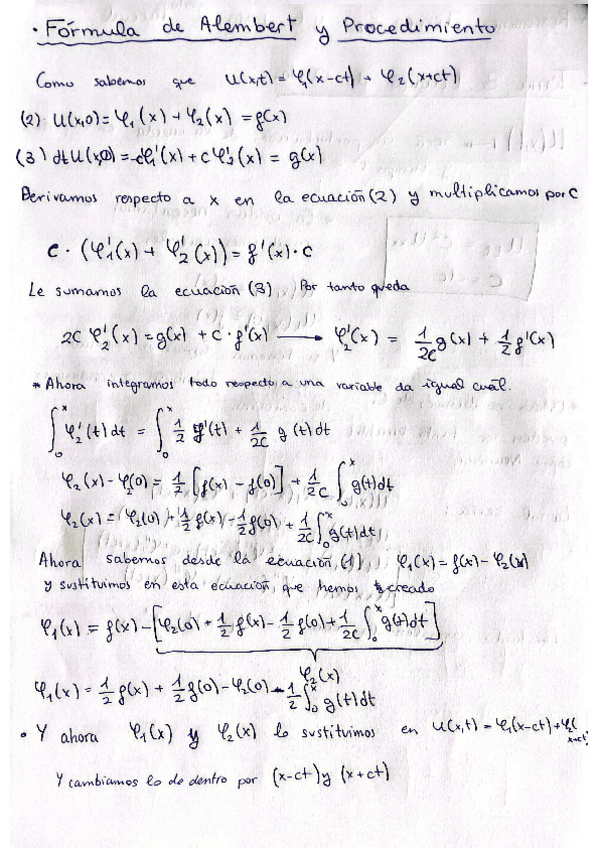 · Fórmula de Alembert y Procedimiento
Como sabemos que U(x,t) = φ₁(x-ct) + φ₂(x+ct)
(2) U(x,0) = φ₁(x) + φ₂(x) = f(x)
(3) dtU(x,0) = -cφ₁'(x) + cφ₂'(x) = g(x)
Derivamos respecto a x en la ecuación (2) y multiplicamos por C
c · (φ₁'(x) + φ₂'(x)) = f'(x) · c
Le sumamos la ecuación (3) Por tanto queda
2C φ₂'(x) = g(x) + c · f'(x) ⟶ φ₂'(x) = 1/2c g(x) + 1/2 f'(x)
* Ahora integramos todo respecto a una variable da igual cuál.
∫₀ˣ φ₂'(t) dt = ∫₀ˣ 1/2 f'(t) + 1/2c g(t) dt
φ₂(x) - φ₂(0) = 1/2 [f(x) - f(0)] + 1/2c ∫₀ˣ g(t) dt
φ₂(x) = φ₂(0) + 1/2 f(x) - 1/2 f(0) + 1/2c ∫₀ˣ g(t) dt
Ahora sabemos desde la ecuación (1) φ₁(x) = f(x) - φ₂(x)
y sustituimos en esta ecuación que hemos creado
φ₁(x) = f(x) - [φ₂(0) + 1/2 f(x) - 1/2 f(0) + 1/2c ∫₀ˣ g(t) dt]
φ₂(x)
φ₁(x) = 1/2 f(x) + 1/2 f(0) - φ₂(0) - 1/2 ∫₀ˣ g(t) dt
• Y ahora φ₁(x) y φ₂(x) lo sustituimos en U(x,t) = φ₁(x-ct) + φ₂(x+ct)
Y cambiamos lo de dentro por (x-ct) y (x+ct)